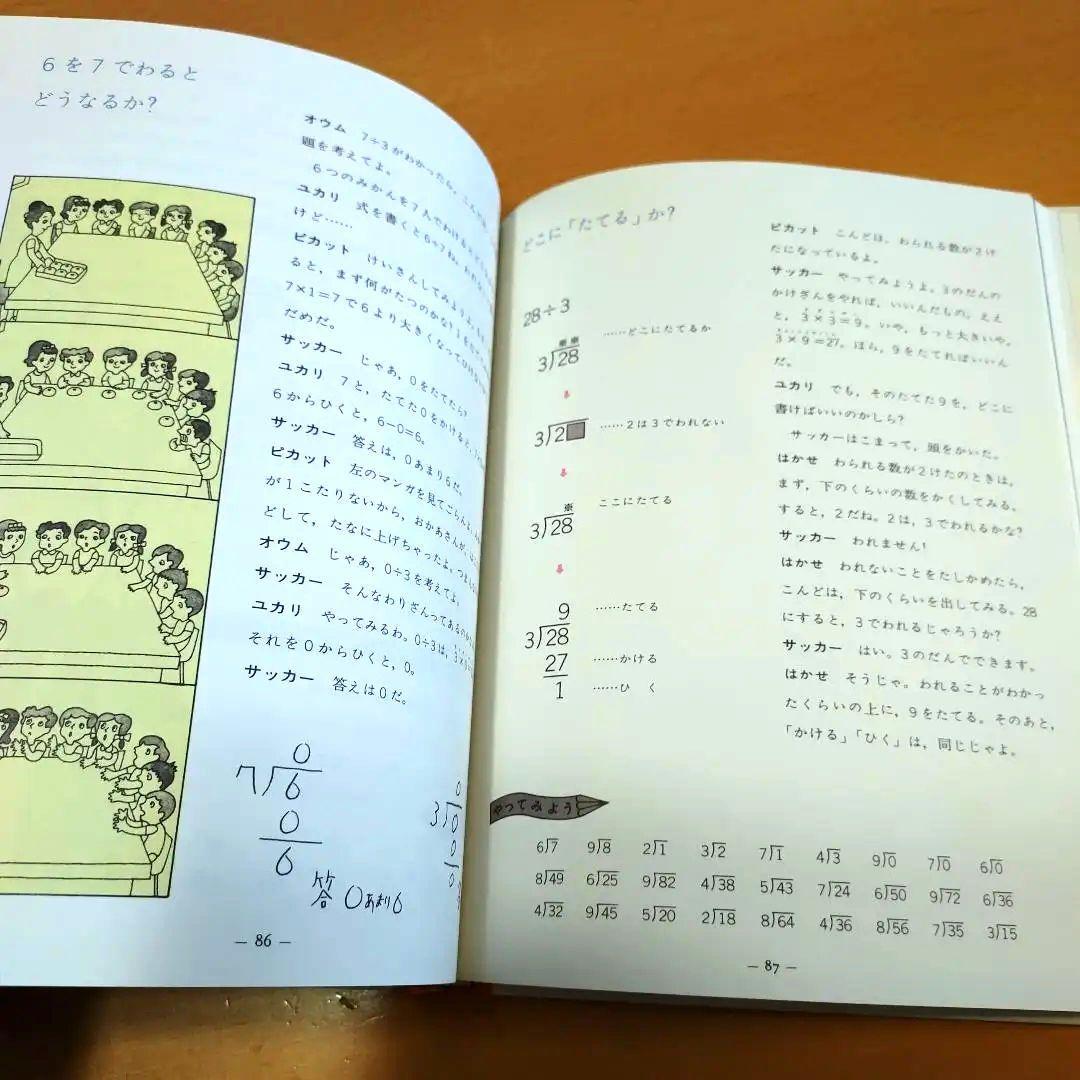 6を7でわると
どうなるか?
オウム 7÷3がわかったら,こんな
題を考えてよ。
6つのみかんを7人でわける
ユカリ 式を書くと6÷7ね。
けど……
ピカット けいさんしてみよう
ると,まず何がたつのかな?
7×1=7で6より大きくなって
だめだ。
サッカー じゃあ,0をたてたら?
ユカリ 7と,たてた0をかけると,
6からひくと,6−0=6。
サッカー 答えは,0あまり6だ。
ピカット 左のマンガを見てごらん
が1こたりないから,おかあさんが,
どして,たなに上げちゃったよ。
オウム じゃあ,0÷3を考えてよ。
サッカー そんなわりざんってあるのか
ユカリ やってみるわ。0÷3は,
それを0からひくと,0。
サッカー 答えは0だ。
0
7)6
0
6
答 0あまり6
0
3)0
0
0
— 86 —
どこに「たてる」か?
28÷3
3)28 ……どこにたてるか
3)2 ……2は3でわれない
3)28 ここにたてる
9 ……たてる
3)28
27 ……かける
1 ……ひく
ピカット こんどは,わられる数が2け
たになっているよ。
サッカー やってみようよ。3のだんの
かけざんをやれば,いいんだもの。ええ
と,3×3=9。いや,もっと大きいや。
3×9=27。ほら,9をたてればいいん
だ。
ユカリ でも,そのたてた9を,どこに
書けばいいのかしら?
サッカーはこまって,頭をかいた。
はかせ わられる数が2けたのときは,
まず,下のくらいの数をかくしてみる。
すると,2だね。2は,3でわれるかな?
サッカー われません!
はかせ われないことをたしかめたら,
こんどは,下のくらいを出してみる。28
にすると,3でわれるじゃろうか?
サッカー はい。3のだんでできます。
はかせ そうじゃ。われることがわかっ
たくらいの上に,9をたてる。そのあと,
「かける」「ひく」は,同じじゃよ。
やってみよう
6)7 9)8 2)1 3)2 7)1 4)3 9)0 7)0 6)0
8)49 6)25 9)82 4)38 5)43 7)24 6)50 9)72 6)36
4)32 9)45 5)20 2)18 8)64 4)36 8)56 7)35 3)15
— 87 —